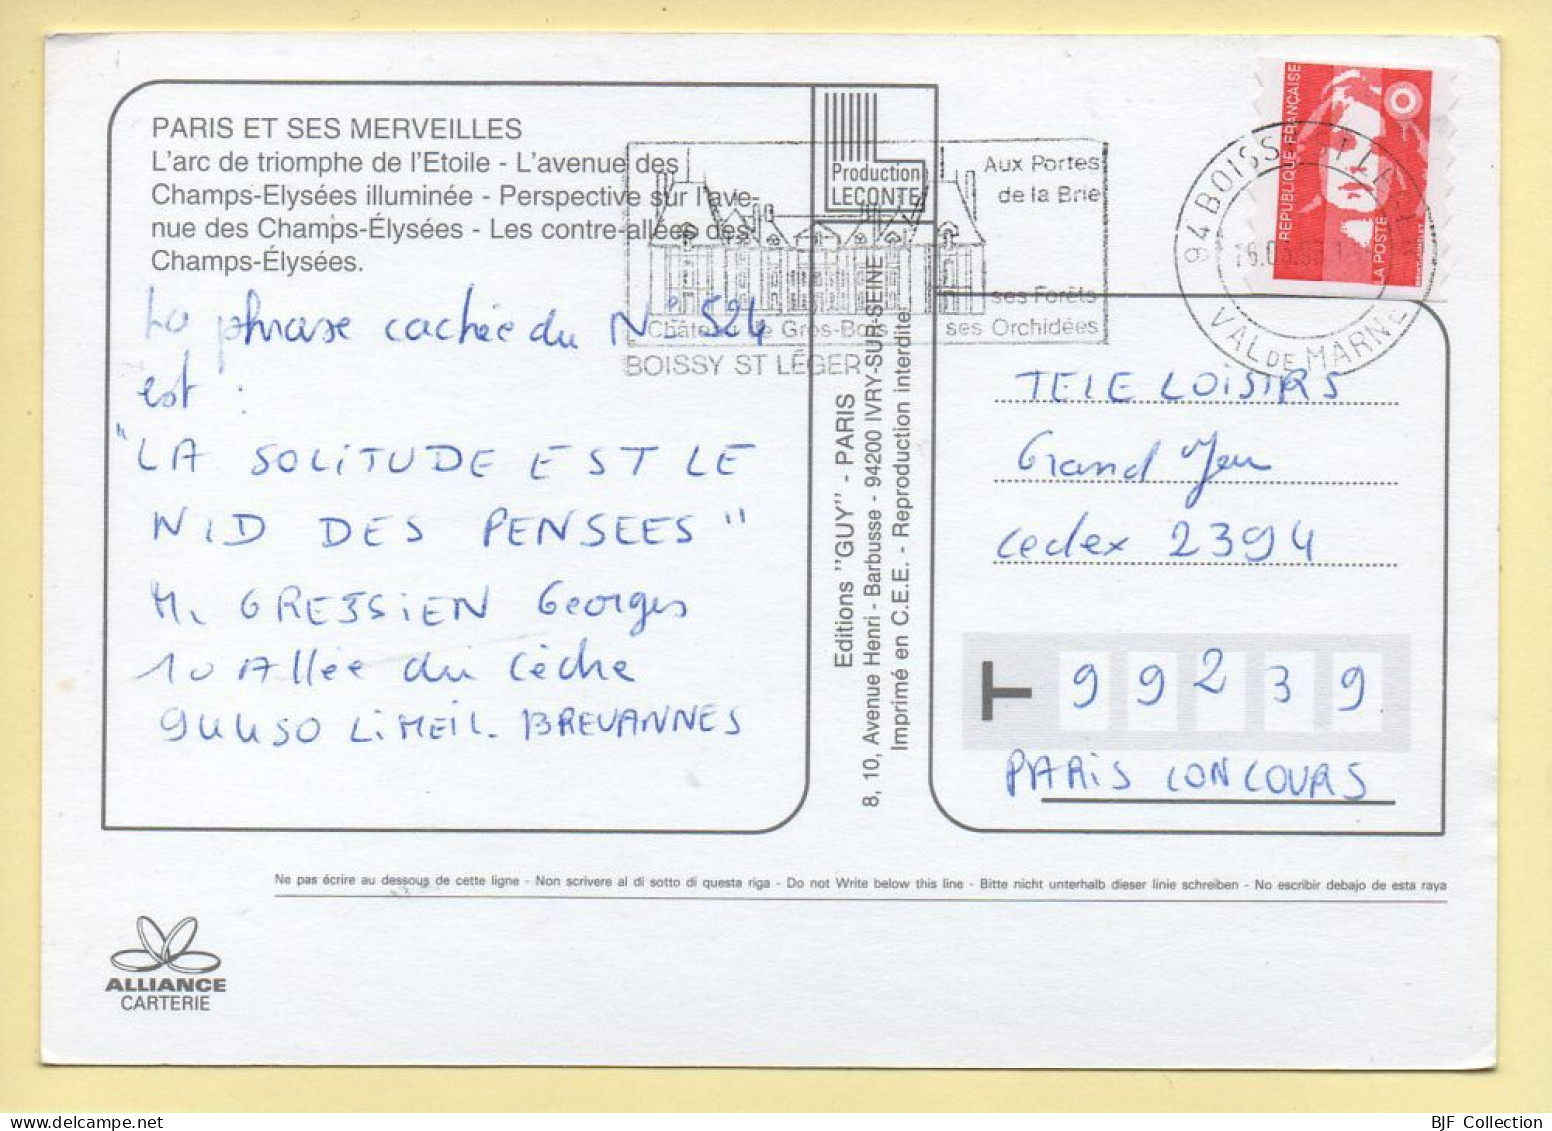 PARIS ET SES MERVEILLES
L'arc de triomphe de l'Etoile - L'avenue des
Champs-Elysées illuminée - Perspective sur l'ave-
nue des Champs-Élysées - Les contre-allées des
Champs-Élysées.
La phrase cachée du N° 524
est :
"LA SOLITUDE EST LE
NID DES PENSEES"
M. GRESSIEN Georges
10 Allée du Cèdre
94450 LIMEIL. BREVANNES
Production
LECONTE
Aux Portes
de la Brie
ses Forêts
ses Orchidées
Château de Gros-Bois
BOISSY ST LÉGER
Editions "GUY" - PARIS
8, 10, Avenue Henri - Barbusse - 94200 IVRY-SUR-SEINE
Imprimé en C.E.E. - Reproduction interdite.
REPUBLIQUE FRANÇAISE
LA POSTE
94 BOISSY ST LEGER
VAL DE MARNE
TELE LOISIRS
Grand Jeu
cedex 2394
T 99239
PARIS CONCOURS
Ne pas écrire au dessous de cette ligne - Non scrivere al di sotto di questa riga - Do not Write below this line - Bitte nicht unterhalb dieser linie schreiben - No escribir debajo de esta raya
ALLIANCE
CARTERIE
BJF Collection